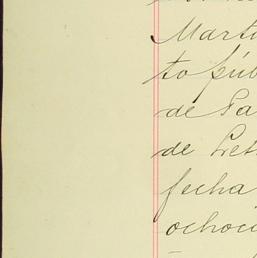 Marti
to púb
de Pa
de Let
fecha
ochoci